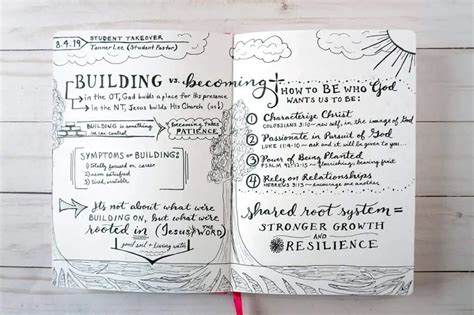 8.4.19
STUDENT TAKEOVER
Tanner Lee (Student Pastor)
BUILDING vs. becoming
in the OT, God builds a place for His presence
in the NT, Jesus builds His Church (us!)
BUILDING is something
we can control
Becoming takes
PATIENCE
SYMPTOMS OF BUILDING:
1) totally focused on career
2) never satisfied
3) tired, irritable
It's not about what we're
BUILDING ON, but what we're
rooted in (Jesus/THE WORD)
good soil + living water
HOW TO BE WHO God
WANTS US TO BE:
1 Characterize Christ
COLOSSIANS 3:10 ~ new self, in the image of God
2 Passionate in Pursuit of God
LUKE 11:9-10 ~ ask and it will be given to you...
3 Power of Being Planted
PSALM ~ flourishing/bearing fruit
4 Rely on Relationships
HEBREWS 3:13 ~ Encourage one another
shared root system =
STRONGER GROWTH
AND
RESILIENCE